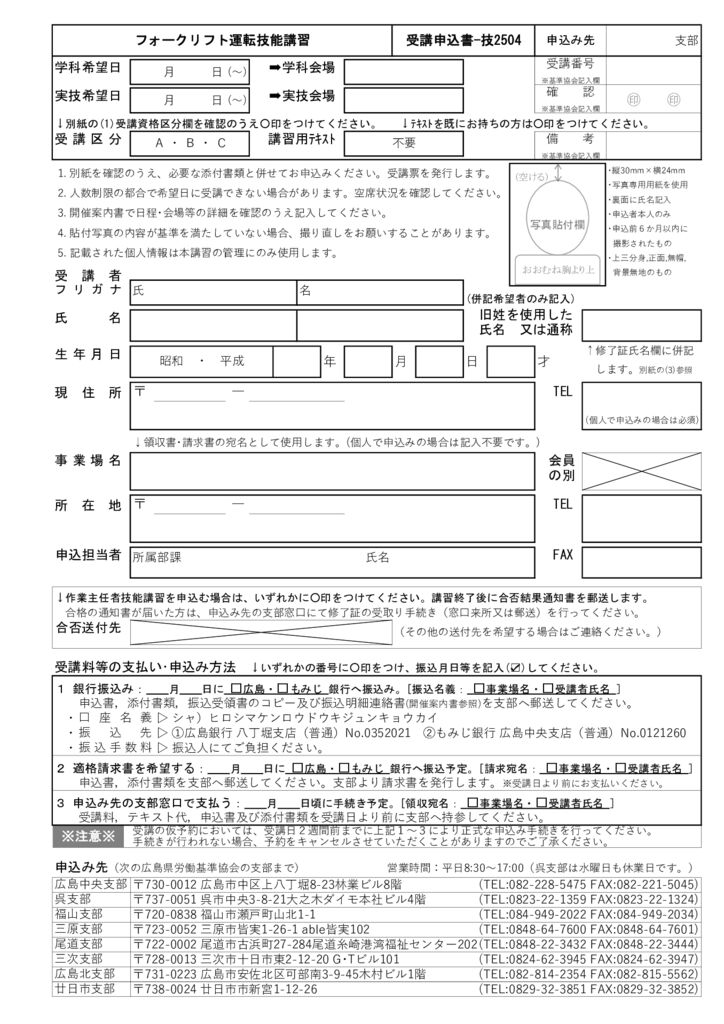 フォークリフト運転技能講習 受講申込書-技2504 申込み先 支部
学科希望日 月 日（～） ➡学科会場 受講番号
※基準協会記入欄
実技希望日 月 日（～） ➡実技会場 確 認 ㊞ ㊞
※基準協会記入欄
↓別紙の(1)受講資格区分欄を確認のうえ〇印をつけてください。 ↓ﾃｷｽﾄを既にお持ちの方は〇印をつけてください。
受 講 区 分 A ・ B ・ C 講習用ﾃｷｽﾄ 不要 備 考
※基準協会記入欄
1. 別紙を確認のうえ、必要な添付書類と併せてお申込みください。受講票を発行します。
2. 人数制限の都合で希望日に受講できない場合があります。空席状況を確認してください。
3. 開催案内書で日程･会場等の詳細を確認のうえ記入してください。
4. 貼付写真の内容が基準を満たしていない場合、撮り直しをお願いすることがあります。
5. 記載された個人情報は本講習の管理にのみ使用します。
(空ける)
写真貼付欄
おおむね胸より上
･縦30mm×横24mm
･写真専用用紙を使用
･裏面に氏名記入
･申込者本人のみ
･申込前６か月以内に
撮影されたもの
･上三分身,正面,無帽,
背景無地のもの
受 講 者
フ リ ガ ナ 氏 名
(併記希望者のみ記入)
氏 名 旧姓を使用した
氏名 又は通称
生 年 月 日 昭和 ・ 平成 年 月 日 才
↑修了証氏名欄に併記
します。別紙の(3)参照
現 住 所 〒 ― TEL
(個人で申込みの場合は必須)
↓領収書･請求書の宛名として使用します。(個人で申込みの場合は記入不要です。)
事 業 場 名 会員
の別
所 在 地 〒 ― TEL
申込担当者 所属部課 氏名 FAX
↓作業主任者技能講習を申込む場合は、いずれかに〇印をつけてください。講習終了後に合否結果通知書を郵送します。
合格の通知書が届いた方は、申込み先の支部窓口にて修了証の受取り手続き（窓口来所又は郵送）を行ってください。
合否送付先 （その他の送付先を希望する場合はご連絡ください。）
受講料等の支払い･申込み方法 ↓いずれかの番号に〇印をつけ、振込月日等を記入(☑)してください。
１ 銀行振込み：＿＿月＿＿日に □広島・□もみじ 銀行へ振込み。[振込名義：□事業場名・□受講者氏名 ]
申込書, 添付書類, 振込受領書のコピー及び振込明細連絡書(開催案内書参照)を支部へ郵送してください。
・口 座 名 義 ▷ シャ）ヒロシマケンロウドウキジュンキョウカイ
・振 込 先 ▷ ①広島銀行 八丁堀支店（普通）No.0352021 ②もみじ銀行 広島中央支店（普通）No.0121260
・振 込 手 数 料 ▷ 振込人にてご負担ください。
２ 適格請求書を希望する：＿＿月＿＿日に □広島・□もみじ 銀行へ振込予定。[請求宛名：□事業場名・□受講者氏名 ]
申込書, 添付書類を支部へ郵送してください。支部より請求書を発行します。※受講日より前にお支払いください。
３ 申込み先の支部窓口で支払う：＿＿月＿＿日頃に手続き予定。[領収宛名：□事業場名・□受講者氏名 ]
受講料, テキスト代, 申込書及び添付書類を受講日より前に支部へ持参してください。
※注意※ 受講の仮予約においては、受講日２週間前までに上記１～３により正式な申込み手続きを行ってください。
手続きが行われない場合、予約をキャンセルさせていただくことがありますのでご了承ください。
申込み先（次の広島県労働基準協会の支部まで） 営業時間：平日8:30～17:00（呉支部は水曜日も休業日です。）
広島中央支部 〒730-0012 広島市中区上八丁堀8-23林業ビル8階 (TEL:082-228-5475 FAX:082-221-5045)
呉支部 〒737-0051 呉市中央3-8-21大之木ダイモ本社ビル4階 (TEL:0823-22-1359 FAX:0823-22-1324)
福山支部 〒720-0838 福山市瀬戸町山北1-1 (TEL:084-949-2022 FAX:084-949-2034)
三原支部 〒723-0052 三原市皆実1-26-1 able皆実102 (TEL:0848-64-7600 FAX:0848-64-7601)
尾道支部 〒722-0002 尾道市古浜町27-284尾道糸崎港湾福祉センター202 (TEL:0848-22-3432 FAX:0848-22-3444)
三次支部 〒728-0013 三次市十日市東2-12-20 G･Tビル101 (TEL:0824-62-3945 FAX:0824-62-3947)
広島北支部 〒731-0223 広島市安佐北区可部南3-9-45木村ビル1階 (TEL:082-814-2354 FAX:082-815-5562)
廿日市支部 〒738-0024 廿日市市新宮1-12-26 (TEL:0829-32-3851 FAX:0829-32-3852)